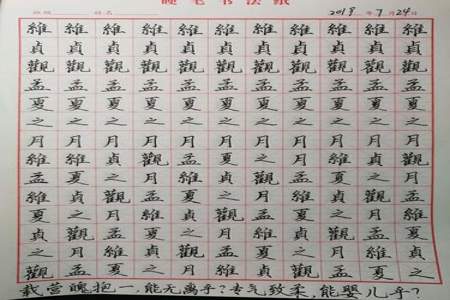 硬笔书法纸
2018年7月24日
維維維維維維維維維維維
貞貞貞貞貞貞貞貞貞貞貞
觀觀觀觀觀觀觀觀觀觀觀
孟孟孟孟孟孟孟孟孟孟孟
夏夏夏夏夏夏夏夏夏夏夏
之之之之之之之之之之之
月月月月月月月月月月月
維維貞觀孟夏之月維貞觀
孟夏之月維貞觀孟夏之月
維貞觀孟夏之月維貞觀孟
夏之月維貞觀孟夏之月維
貞觀孟夏之月維貞觀孟夏
之月維貞觀孟夏之月維貞
觀孟夏之月維貞觀孟夏之
载营魄抱一,能无离乎?专气致柔,能婴儿乎?